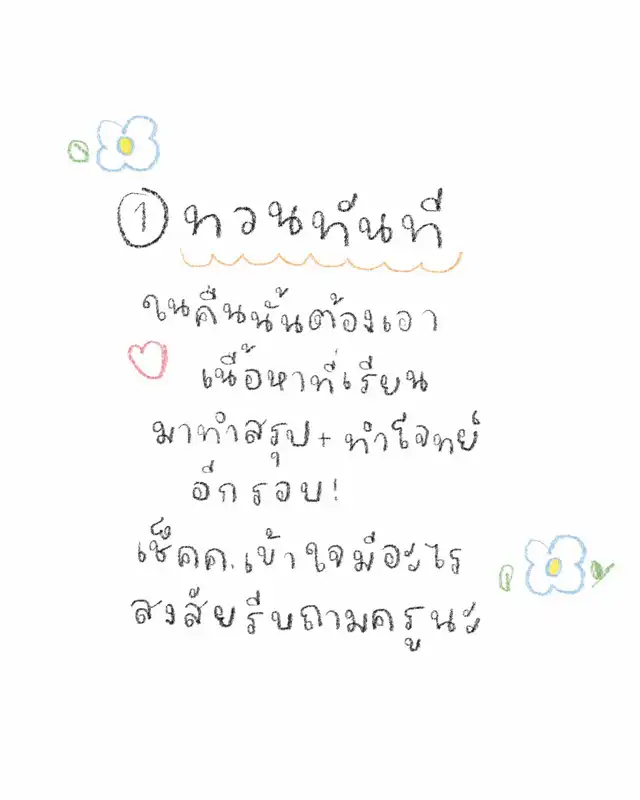 ① ทวนทันที
ในคืนนั้นต้องเอา
เนื้อหาที่เรียน
มาทำสรุป + ทำโจทย์
อีกรอบ!
เช็คค.เข้าใจมีอะไร
สงสัยรีบถามครูนะ